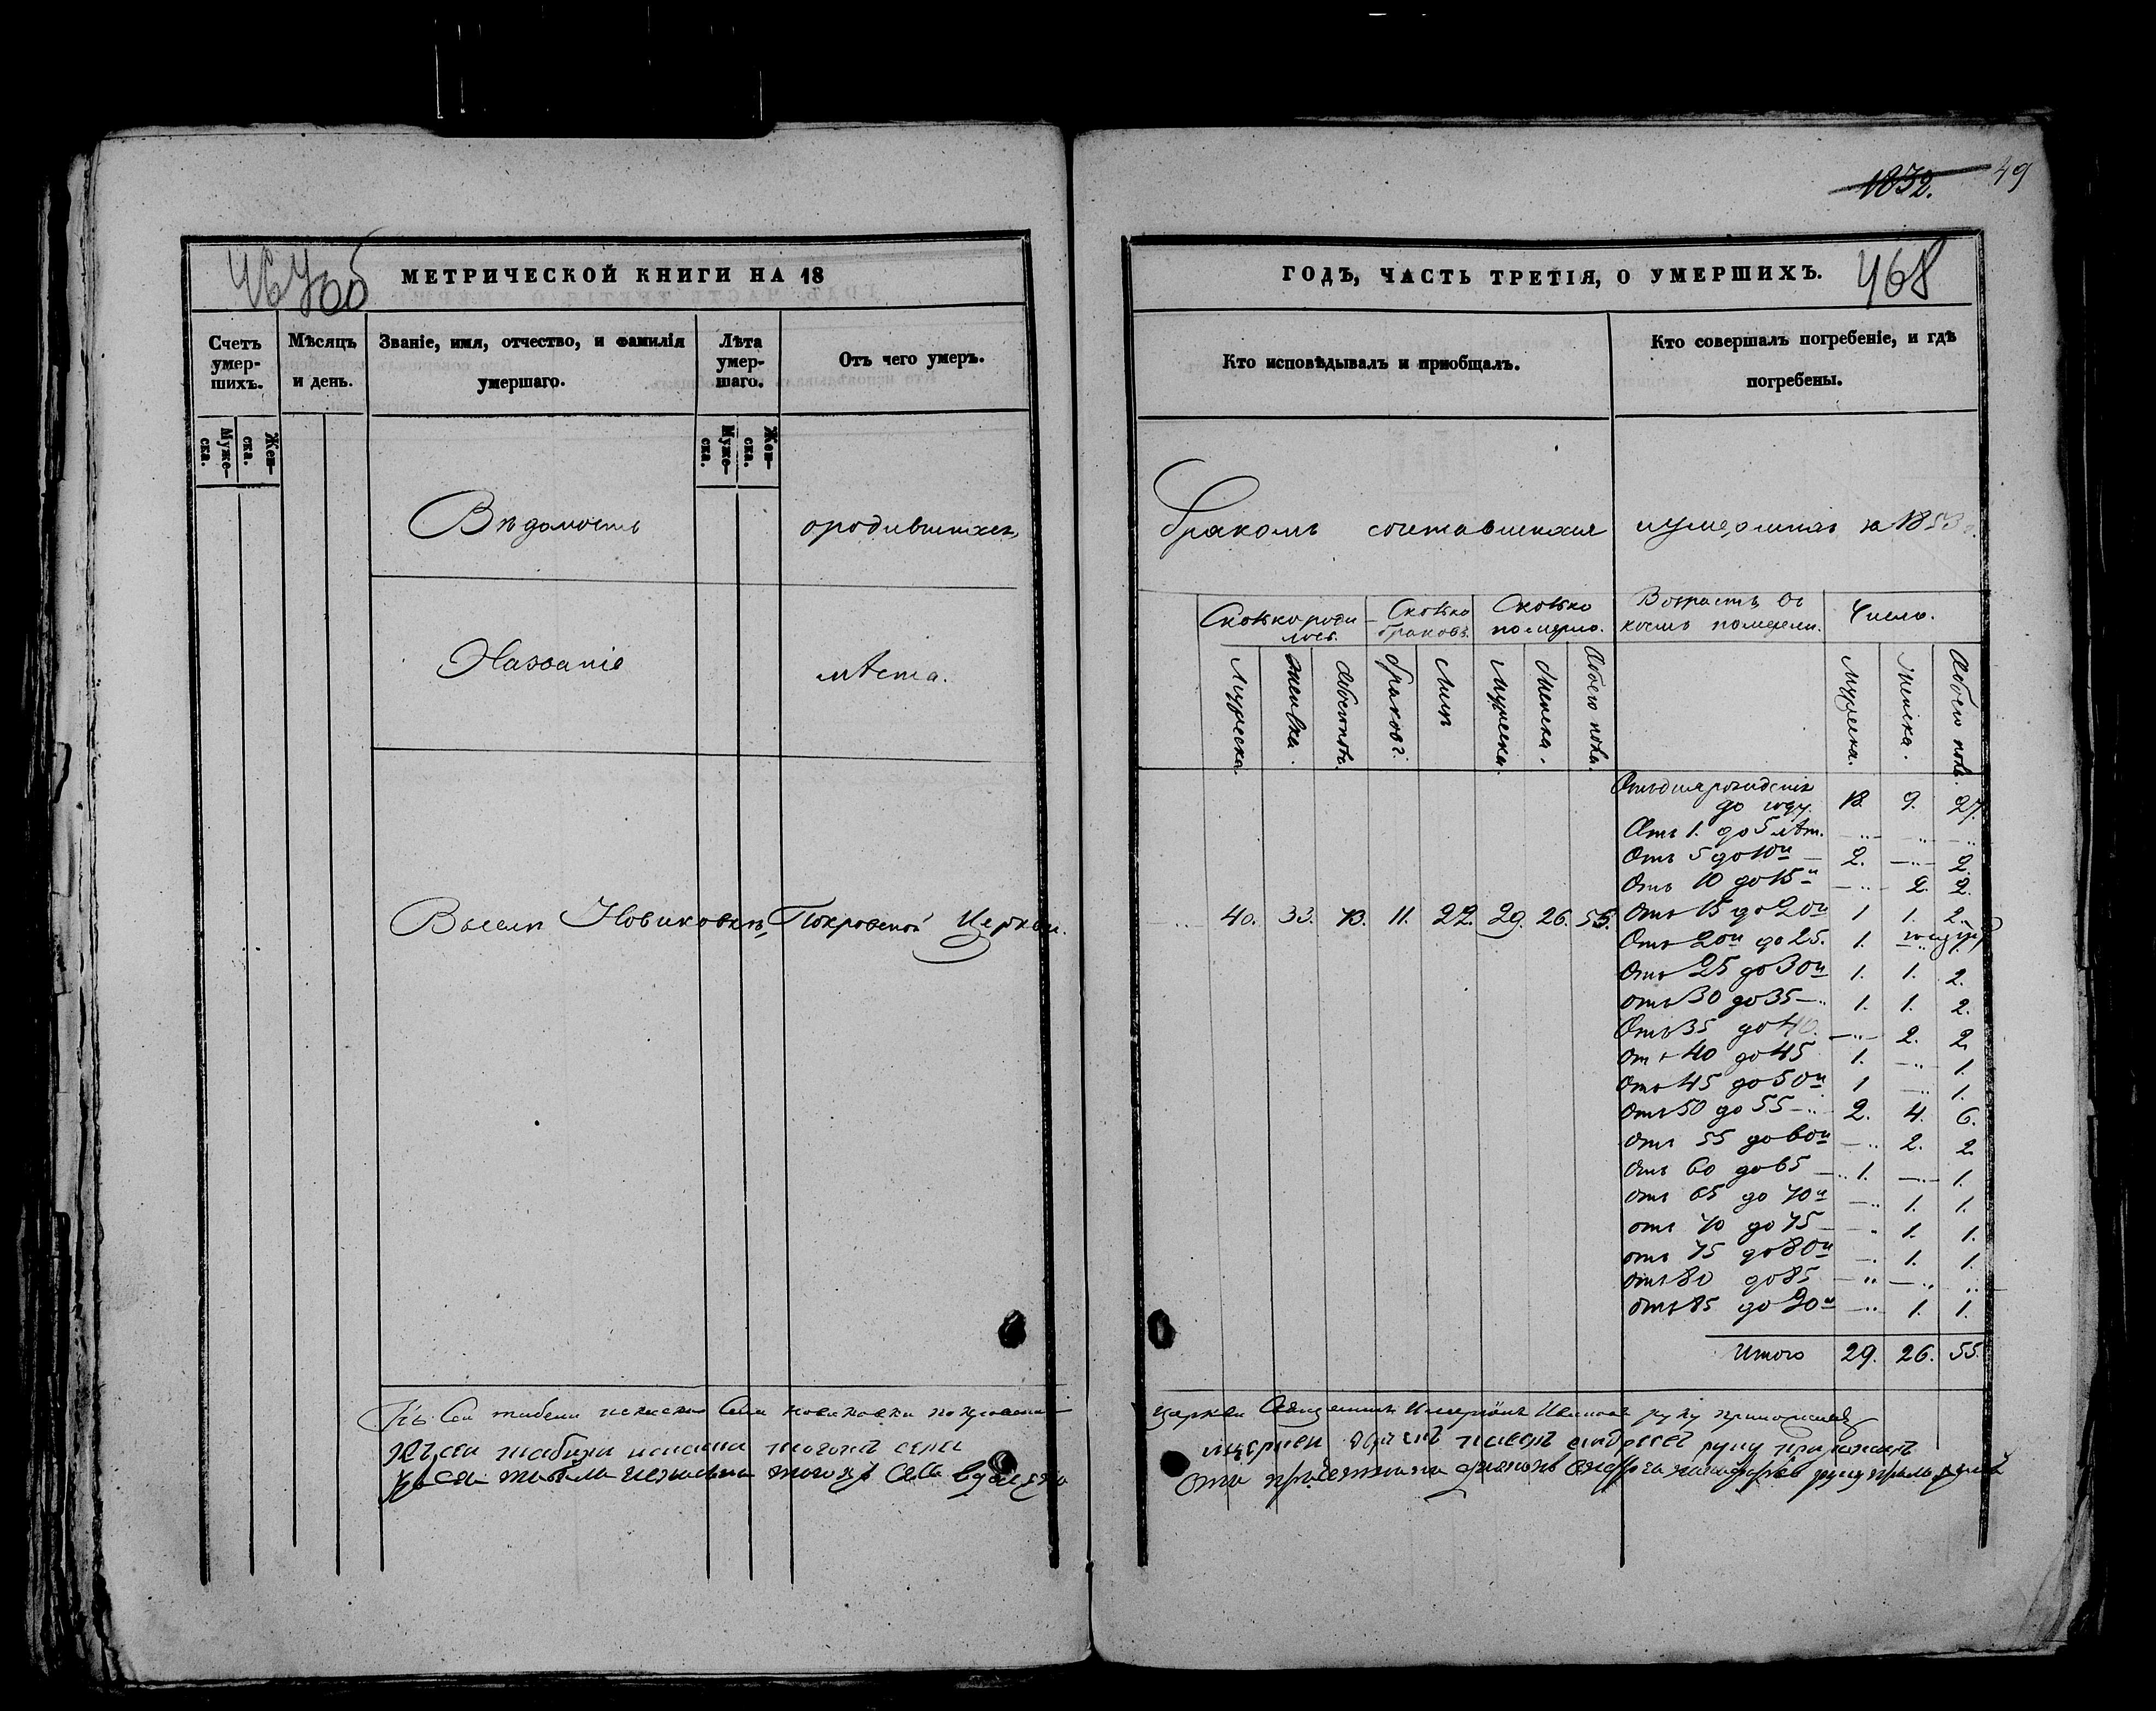 1832. 49
467об
МЕТРИЧЕСКОЙ КНИГИ НА 18
Счетъ умер-шихъ.
Муже-ска.
Жен-ска.
Мѣсяцъ и день.
Званіе, имя, отчество, и фамилія умершаго.
Лѣта умер-шаго.
Муже-ска.
Жен-ска.
Отъ чего умеръ.
ГОДЪ, ЧАСТЬ ТРЕТІЯ, О УМЕРШИХЪ.
468
Кто исповѣдывалъ и пріобщалъ.
Кто совершалъ погребеніе, и гдѣ погребены.
Вѣдомость о родившихся, бракомъ сочетавшихся и умершихъ за 1853
Названіе мѣста.
Сколько родилось.
Мужеска.
Женска.
Обоего пола.
Сколько браковъ.
Браковъ.
Лицъ
Сколько померло.
Мужеска.
Женска.
Обоего пола.
Возрастъ въ коемъ померли.
Число.
Мужеска.
Женска.
Обоего пола.
Въ селѣ Новиковкѣ, Покровской Церкви.
40. 33. 73. 11. 22. 29. 26. 55.
Отъ дня рожденія до году. 18. 9. 27.
Отъ 1. до 5 лѣт. -„- „ „
Отъ 5 до 10и 2. -„- 2.
Отъ 10 до 15и -„- 2. 2.
Отъ 15 до 20и 1 1. 2.
Отъ 20и до 25. 1.
Отъ 25 до 30и 1. 1. 2.
Отъ 30 до 35 1. 1. 2.
Отъ 35 до 40. -„- 2. 2.
Отъ 40 до 45 1. -„- 1.
Отъ 45 до 50и 1 -„- 1.
Отъ 50 до 55 2. 4. 6.
Отъ 55 до 60и -„ 2. 2
Отъ 60 до 65 1. -„- 1.
Отъ 65 до 70и -„ 1. 1.
отъ 70 до 75 -„ 1. 1.
отъ 75 до 80и -„ 1. 1.
отъ 80 до 85 -„- -„ „
отъ 85 до 90и -„ 1. 1.
Итого 29. 26. 55.
Къ сей табели села Новиковки Покровской церкви Священникъ Иванов руку приложилъ
Къ сей табели тогожъ села руку приложилъ
Къ сей табели тогожъ села руку приложилъ